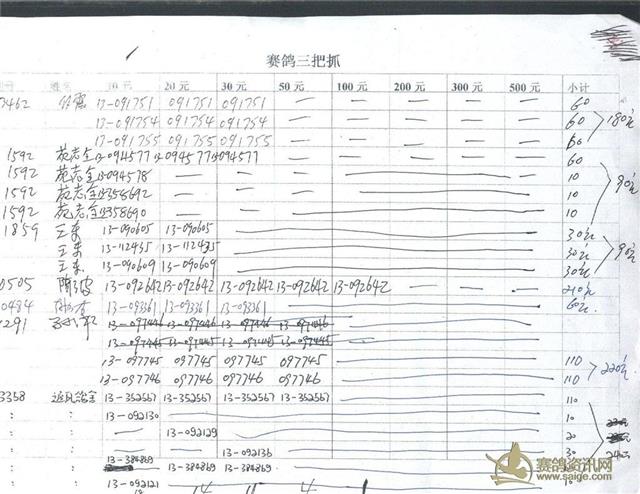 赛鸽三把抓
姓名 10元 20元 30元 50元 100元 200元 300元 500元 小计
3462 13-091751 091751 091751 — — — — — 60
13-091754 091754 091754 — — — — — 60 180元
13-091755 091755 091755 — — — — — 60
1592 苑志全 13-094577 13-094577 13-094577 — — — — — 60
1592 苑志全 13-094578 — — 10 90元
1592 苑志全 358692 — — 10
1592 苑志全 358690 — — 10
1859 王东 13-090605 13-090605 30元
王东 13-112435 13-112435 30元 90元
王东 13-090609 13-090609 30元
0505 13-092642 13-092642 13-092642 13-092642 13-092642 — — — 210元
0484 13-093361 13-093361 13-093361 60元
1291 13-097446 13-097446 13-097446 13-097446
13-097445 13-097445 13-097445 13-097445
13-097745 097745 097745 097745 110 220元
13-097746 097746 097746 097746 110
3368 13-352567 13-352567 13-352567 13-352567 110
: : 13-092130 10
: : — 13-092129 20
: : 13-092136 30 24元
: 13-384869 13-384869 13-384869
: : 13-092121 10
赛鸽资讯网
www.saige.com